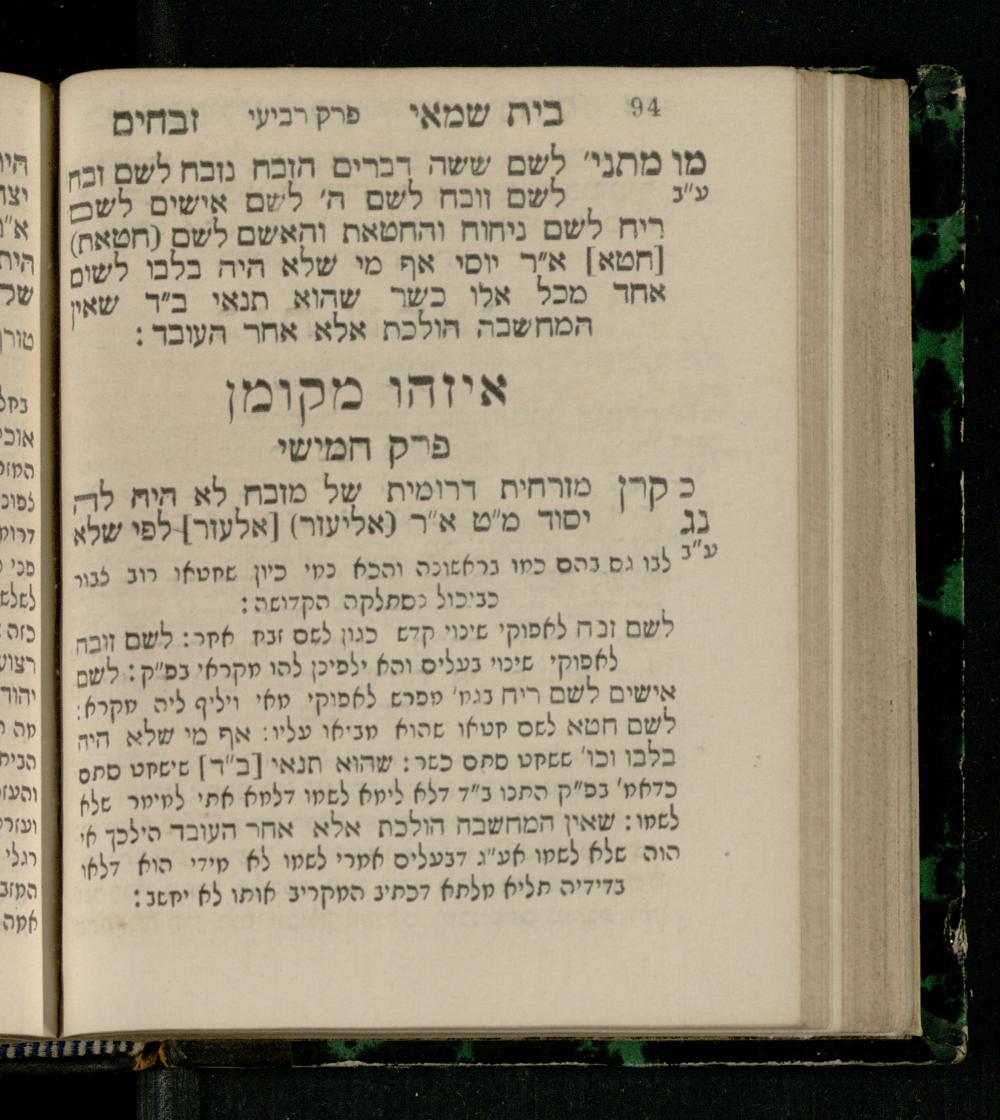 94 בית שמאי פרק רביעי זבחים
מו מתני׳ לשם ששה דברים הזבח נזבח לשם זבח
ע״ב לשם זובח לשם ה׳ לשם אישים לשם
ריח לשם ניחוח והחטאת והאשם לשם (חטאת)
[חטא] א״ר יוסי אף מי שלא היה בלבו לשום
אחד מכל אלו כשר שהוא תנאי ב״ד שאין
המחשבה הולכת אלא אחר העובד :
איזהו מקומן
פרק חמישי
כ קרן מזרחית דרומית של מזבח לא היה לה
נג יסוד מ״ט א״ר (אליעזר) [אלעזר] לפי שלא
ע״ב לבו גם בהם כמו בראשונה והכא כמי כיון שחטאו רוב צבור
כביכול נסתלקה הקדושה :
לשם זבח לאפוקי שינוי קדש כגון לשם זבח אחר : לשם זובח
לאפוקי שינוי בעלים והא ילפינן להו מקראי בפ״ק : לשם
אישים לשם ריח בגמ׳ מפרש לאפוקי מאי ויליף ליה מקרא :
לשם חטא לשם חטאו שהוא מביאו עליו : אף מי שלא היה
בלבו וכו׳ ששקט סתם כשר : שהוא תנאי [ב״ד] שישקט סתם
כדאמ׳ בפ״ק התנו ב״ד דלא לימא לשמו דלמא אתי למימר שלא
לשמו : שאין המחשבה הולכת אלא אחר העובד הילכך אי
הוה שלא לשמו אע״ג דבעלים אמרי לשמו לא מידי הוא דלאו
בדידיה תליא מלתא דכתיב המקריב אותו לא יחשב :